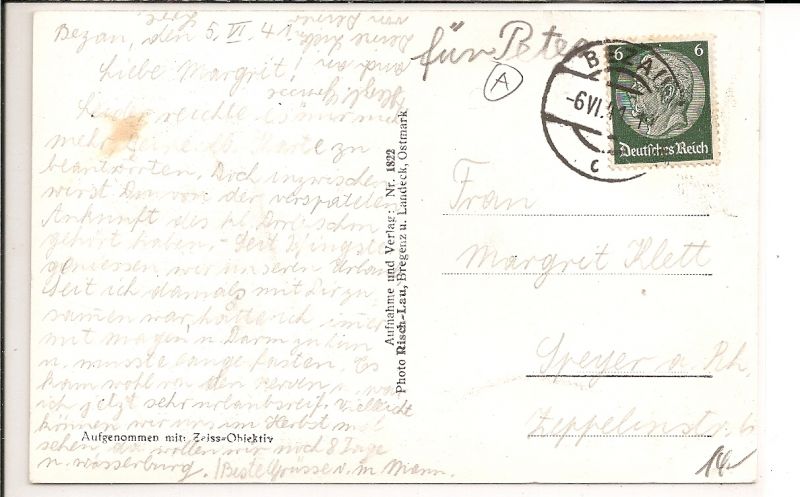 Bezau, den 5. VI. 41.
Liebe Margrit!
Leider reichte es nur nicht
mehr, Deine Karte zu
beantworten. Doch inzwischen
wirst Du von der verspäteten
Ankunft des
gehört haben. – Seit Pfingsten
geniessen wir unseren Urlaub
Seit ich damals mit Dir zu-
sammen war, hatte ich immer
mit Magen u. Darm zu tun
u. musste lange fasten. Es
kam wohl von den Nerven u. war
ich jetzt sehr urlaubsreif. Vielleicht
können wir uns im Herbst mal
sehen, da wollen wir noch 8 Tage
n. Wasserburg. Beste Grüsse v. m. Mann.
Aufgenommen mit: Zeiss-Objektiv
Aufnahme und Verlag: Nr. 1822
Photo Risch-Lau, Bregenz u. Landeck, Ostmark
für Peter
A
BEZAU
-6.VI.41
c
6 6
Deutsches Reich
Frau
Margrit Klett
Speyer a. Rh.
Zeppelinstr.
14-